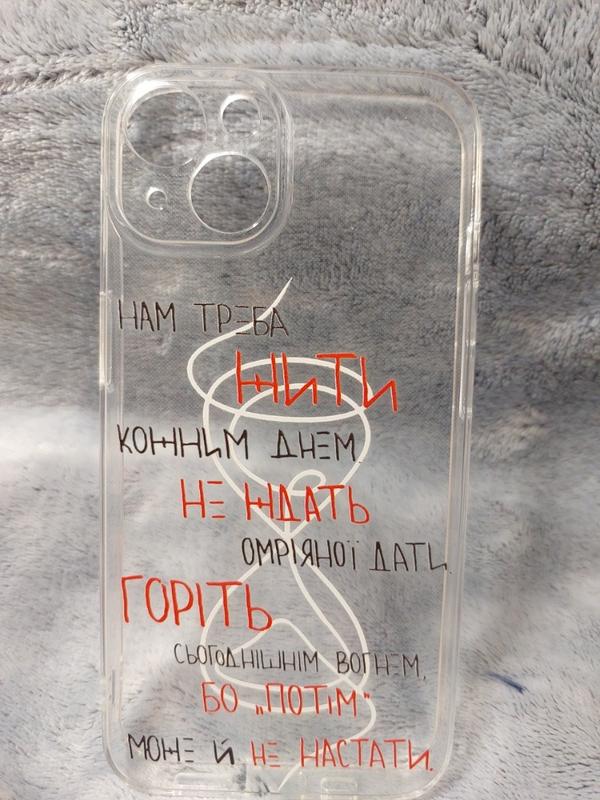 НАМ ТРЕБА
ЖИТИ
КОЖНИМ ДНЕМ
НЕ ЖДАТЬ
ОМРІЯНОЇ ДАТИ.
ГОРІТЬ
СЬОГОДНІШНІМ ВОГНЕМ,
БО „ПОТІМ"
МОЖЕ Й НЕ НАСТАТИ.